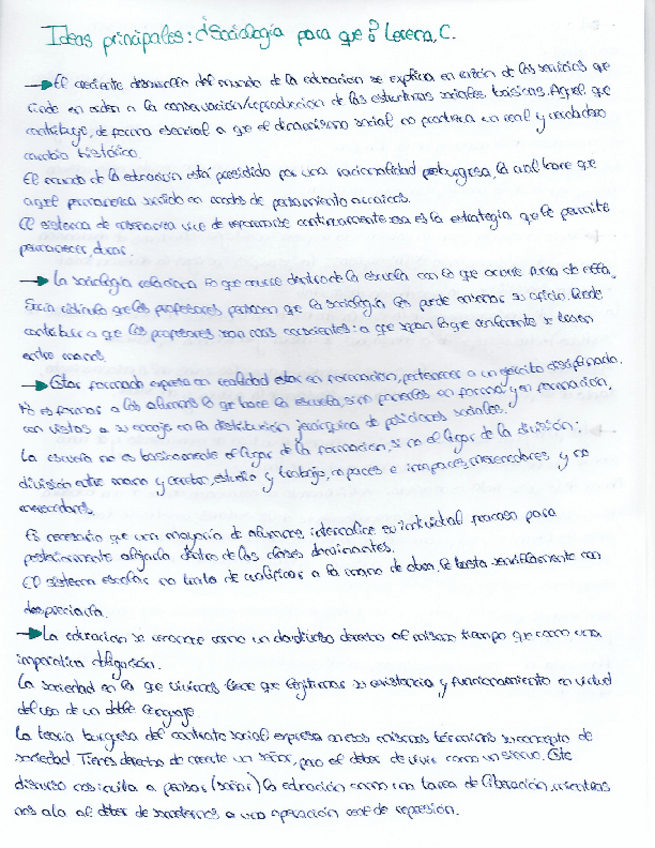 Ideas principales: ¿Sociología para que? Lerena, C.
El creciente desarrollo del mundo de la educación se explica en razón de los servicios que
rinde en orden a la conservación/reproducción de las estructuras sociales básicas. Aquel que
contribuye, de forma esencial a que el dinamismo social no produzca un real y verdadero
cambio histórico.
El mundo de la educación está presidido por una racionalidad preburguesa, la cual hace que
aquel permanezca sumido en modos de pensamiento arcaicos.
El sistema de enseñanza vive de reformarse continuamente esa es la estrategia que le permite
permanecer
La sociología relaciona lo que ocurre dentro de la escuela con lo que ocurre fuera de ella.
Sería ridículo que los profesores pensasen que la sociología les puede enseñar su oficio. Puede
contribuir a que los profesores sean más conscientes: a que sepan lo que realmente se traen
entre manos.
Estar formado expresa en realidad estar en formación, pertenecer a un ejército disciplinado.
No es formar a los alumnos lo que hace la escuela, sino ponerlos en forma y en formación,
con vistas a su encaje en la distribución jerárquica de posiciones sociales.
La escuela no es basicamente el lugar de la formación, si no el lugar de la división:
división entre mano y cerebro, estudio y trabajo, capaces e incapaces, merecedores y no
merecedores.
Es necesario que una mayoría de alumnos internalice su individual fracaso para
posteriormente dentro de las clases dominantes.
El sistema escolar no trata de cualificar a la mano de obra, le basta sencillamente con
despreciarla.
La educación se concibe como un derecho al mismo tiempo que como una
imperativa obligación.
La sociedad en la que vivimos tiene que legitimar su existencia y funcionamiento en virtud
del uso de un doble lenguaje.
La teoría burguesa del contrato social expresa en esos mismos términos su concepto de
sociedad. Tienes derecho de creerte un señor, pero el deber de vivir como un siervo. Este
discurso nos invita a pensar (soñar) la educación como una tarea de liberación, mientras
nos ata al deber de someternos a una operación real de represión.